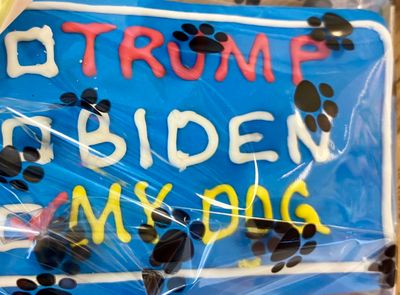 TRUMP
BIDEN
MY DOG